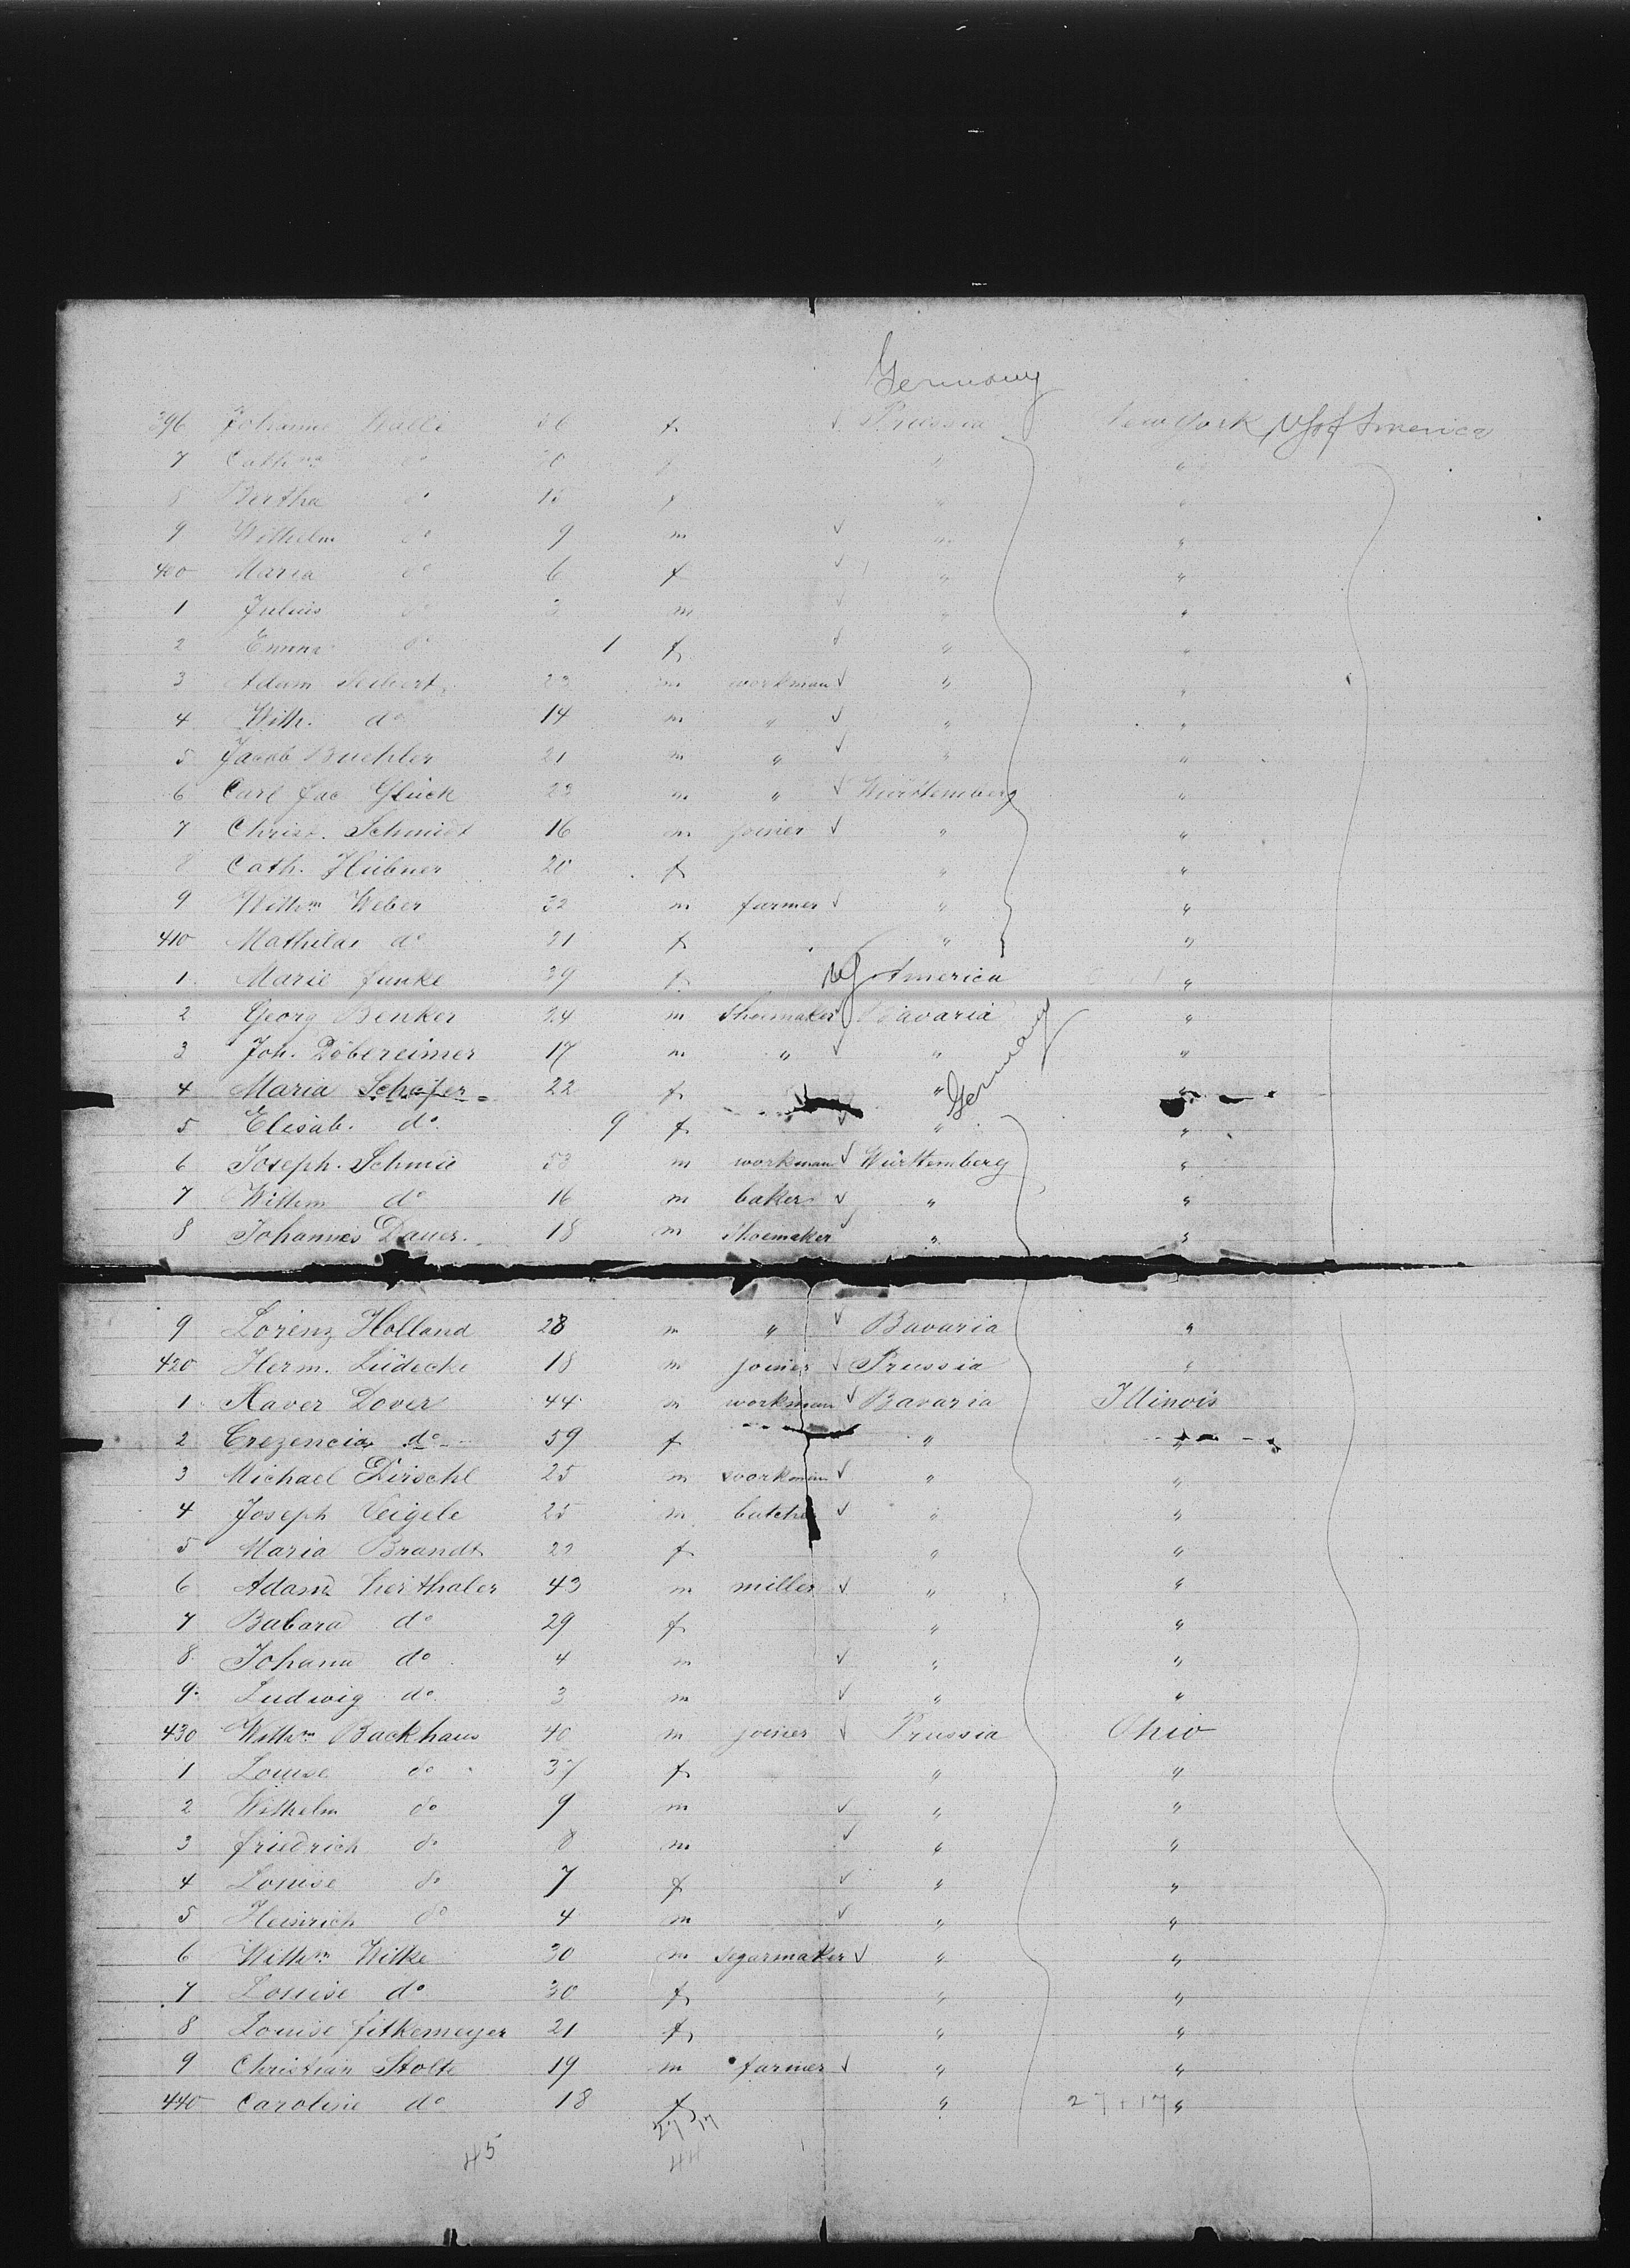 Germany
396 Johanne Walle 36 f √ Prussia New York US of America
7 Cath^na d° 20 f " "
8 Bertha d° 15 f " "
9 Wilhelm d° 9 m √ " "
400 Maria d° 6 f √ " "
1 Julius d° 3 m √ " "
2 Emma d° 1 f √ " "
3 Adam Seibert 23 m workman √ " "
4 Wilh. d° 14 m " √ " "
5 Jacob Buehler 21 m " √ " "
6 Carl Jac Glück 22 m " √ Württemberg "
7 Christ. Schmidt 16 m joiner √ " "
8 Cath. Hübner 20 f " "
9 Wilh^m Weber 32 m farmer √ " "
410 Mathilde d° 21 f " "
1 Marie Funke 29 f US America "
2 Georg Benker 24 m Shoemaker Bavaria "
3 Joh. Döbereimer 17 m " √ " "
Germany
4 Maria Schäfer 22 f " "
5 Elisab. d° 9 f √ " "
6 Joseph. Schmid 53 m workman √ Württemberg "
7 Wilhm d° 16 m baker √ " "
8 Johannes Dauer 18 m Shoemaker √ " "
9 Lorenz Holland 28 m " √ Bavaria "
420 Herm. Lüdecke 18 m joiner √ Prussia "
1 Xaver Dover 44 m workman √ Bavaria Illinois
2 Crezencia d° 59 f " "
3 Michael Dirschl 25 m workman √ " "
4 Joseph Veigele 25 m butcher √ " "
5 Maria Brandt 22 f " "
6 Adam Lierthaler 43 m miller √ " "
7 Babara d° 29 f " "
8 Johann d° 4 m √ " "
9 Ludwig d° 3 m √ " "
430 Wilh^m Backhaus 40 m joiner √ Prussia Ohio
1 Louise d° 37 f " "
2 Wilhelm d° 9 m √ " "
3 Friedrich d° 8 m √ " "
4 Louise d° 7 f √ " "
5 Heinrich d° 4 m √ " "
6 Wilh^m Wilke 30 m Segarmaker √ " "
7 Louise d° 30 f " "
8 Louise Fitkemeyer 21 f " "
9 Christian Stolte 19 m farmer √ " "
440 Caroline d° 18 f " 27+17 "
27 17
45 44